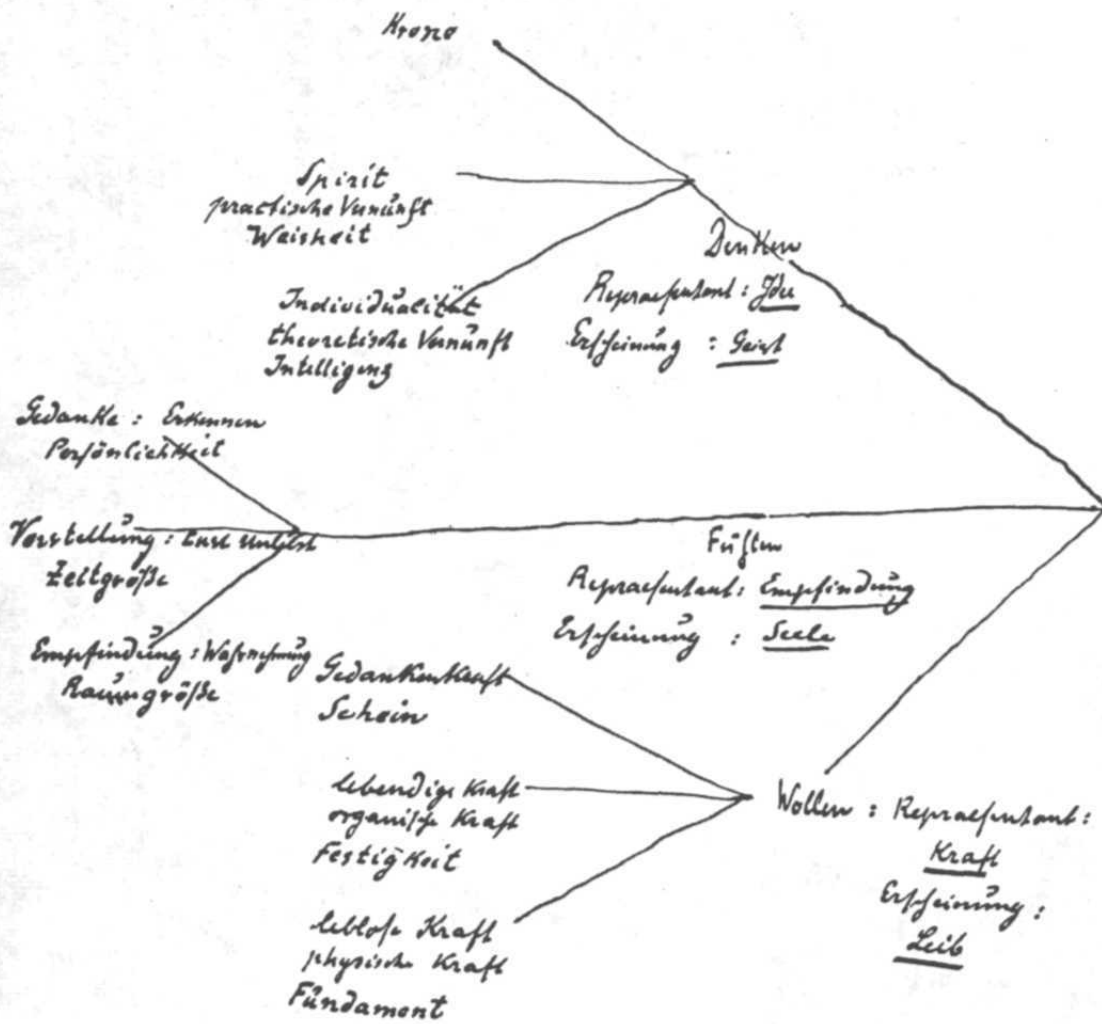 Krone
Spirit
practische Vernunft
Weisheit
Individualität
theoretische Vernunft
Intelligenz
Denken
Repraesentant : Idee
Erscheinung : Geist
Gedanke : Erkennen
Persönlichkeit
Vorstellung : Lust Unlust
Zeitgröße
Empfindung : Wahrnehmung
Raumgröße
Fühlen
Repraesentant : Empfindung
Erscheinung : Seele
Gedankenkraft
Schein
lebendige Kraft
organische Kraft
Festigkeit
leblose Kraft
physische Kraft
Fundament
Wollen : Repraesentant :
Kraft
Erscheinung :
Leib